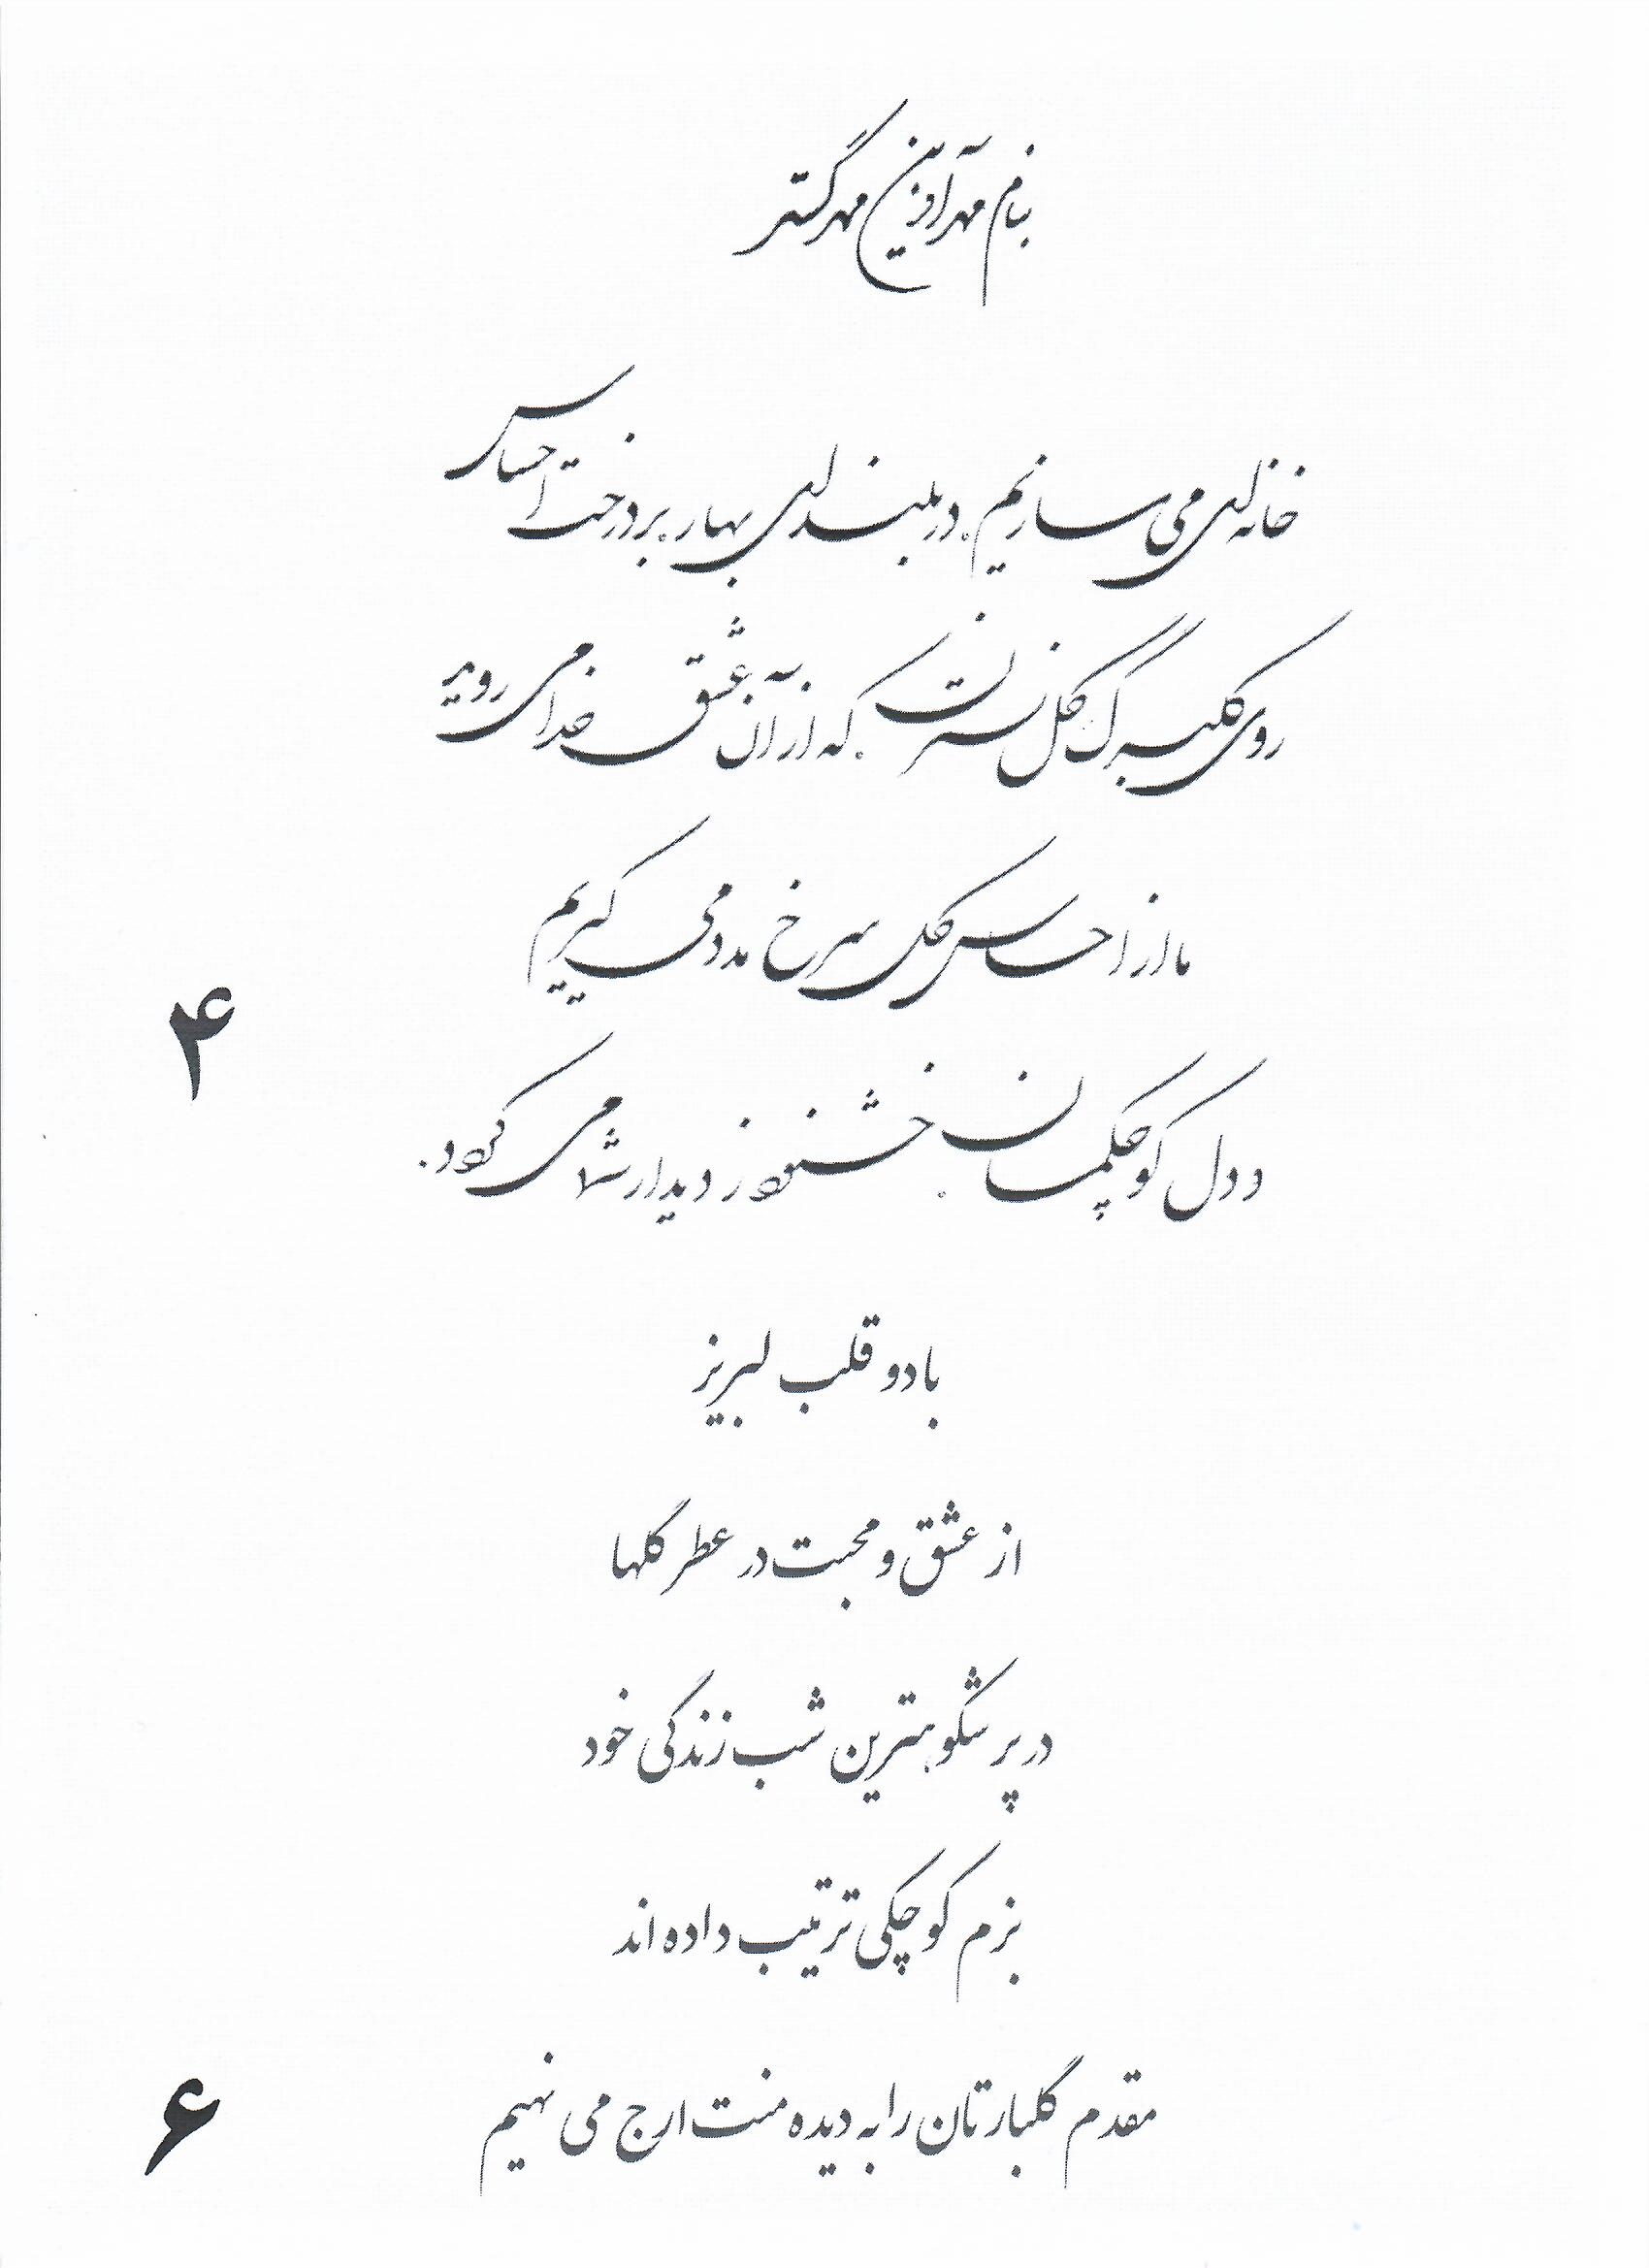 بنام مهرآذین مهرگستر
خانه ای می سازیم. در بلندای بهار. بر درخت احساس
روی گلبرگ گل نسترن. که از آن عشق خدا می روید
ما از احساس گل سرخ مدد می گیریم
و دل کوچکمان. خشنود ز دیدار شما می گردد.
۴
با دو قلب لبریز
از عشق و محبت در عطر گلها
در پر شکوهترین شب زندگی خود
بزم کوچکی ترتیب داده اند
مقدم گلبارتان را به دیده منت ارج می نهیم
۶